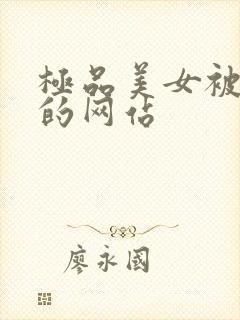 極品美女被
的网站
廖永國